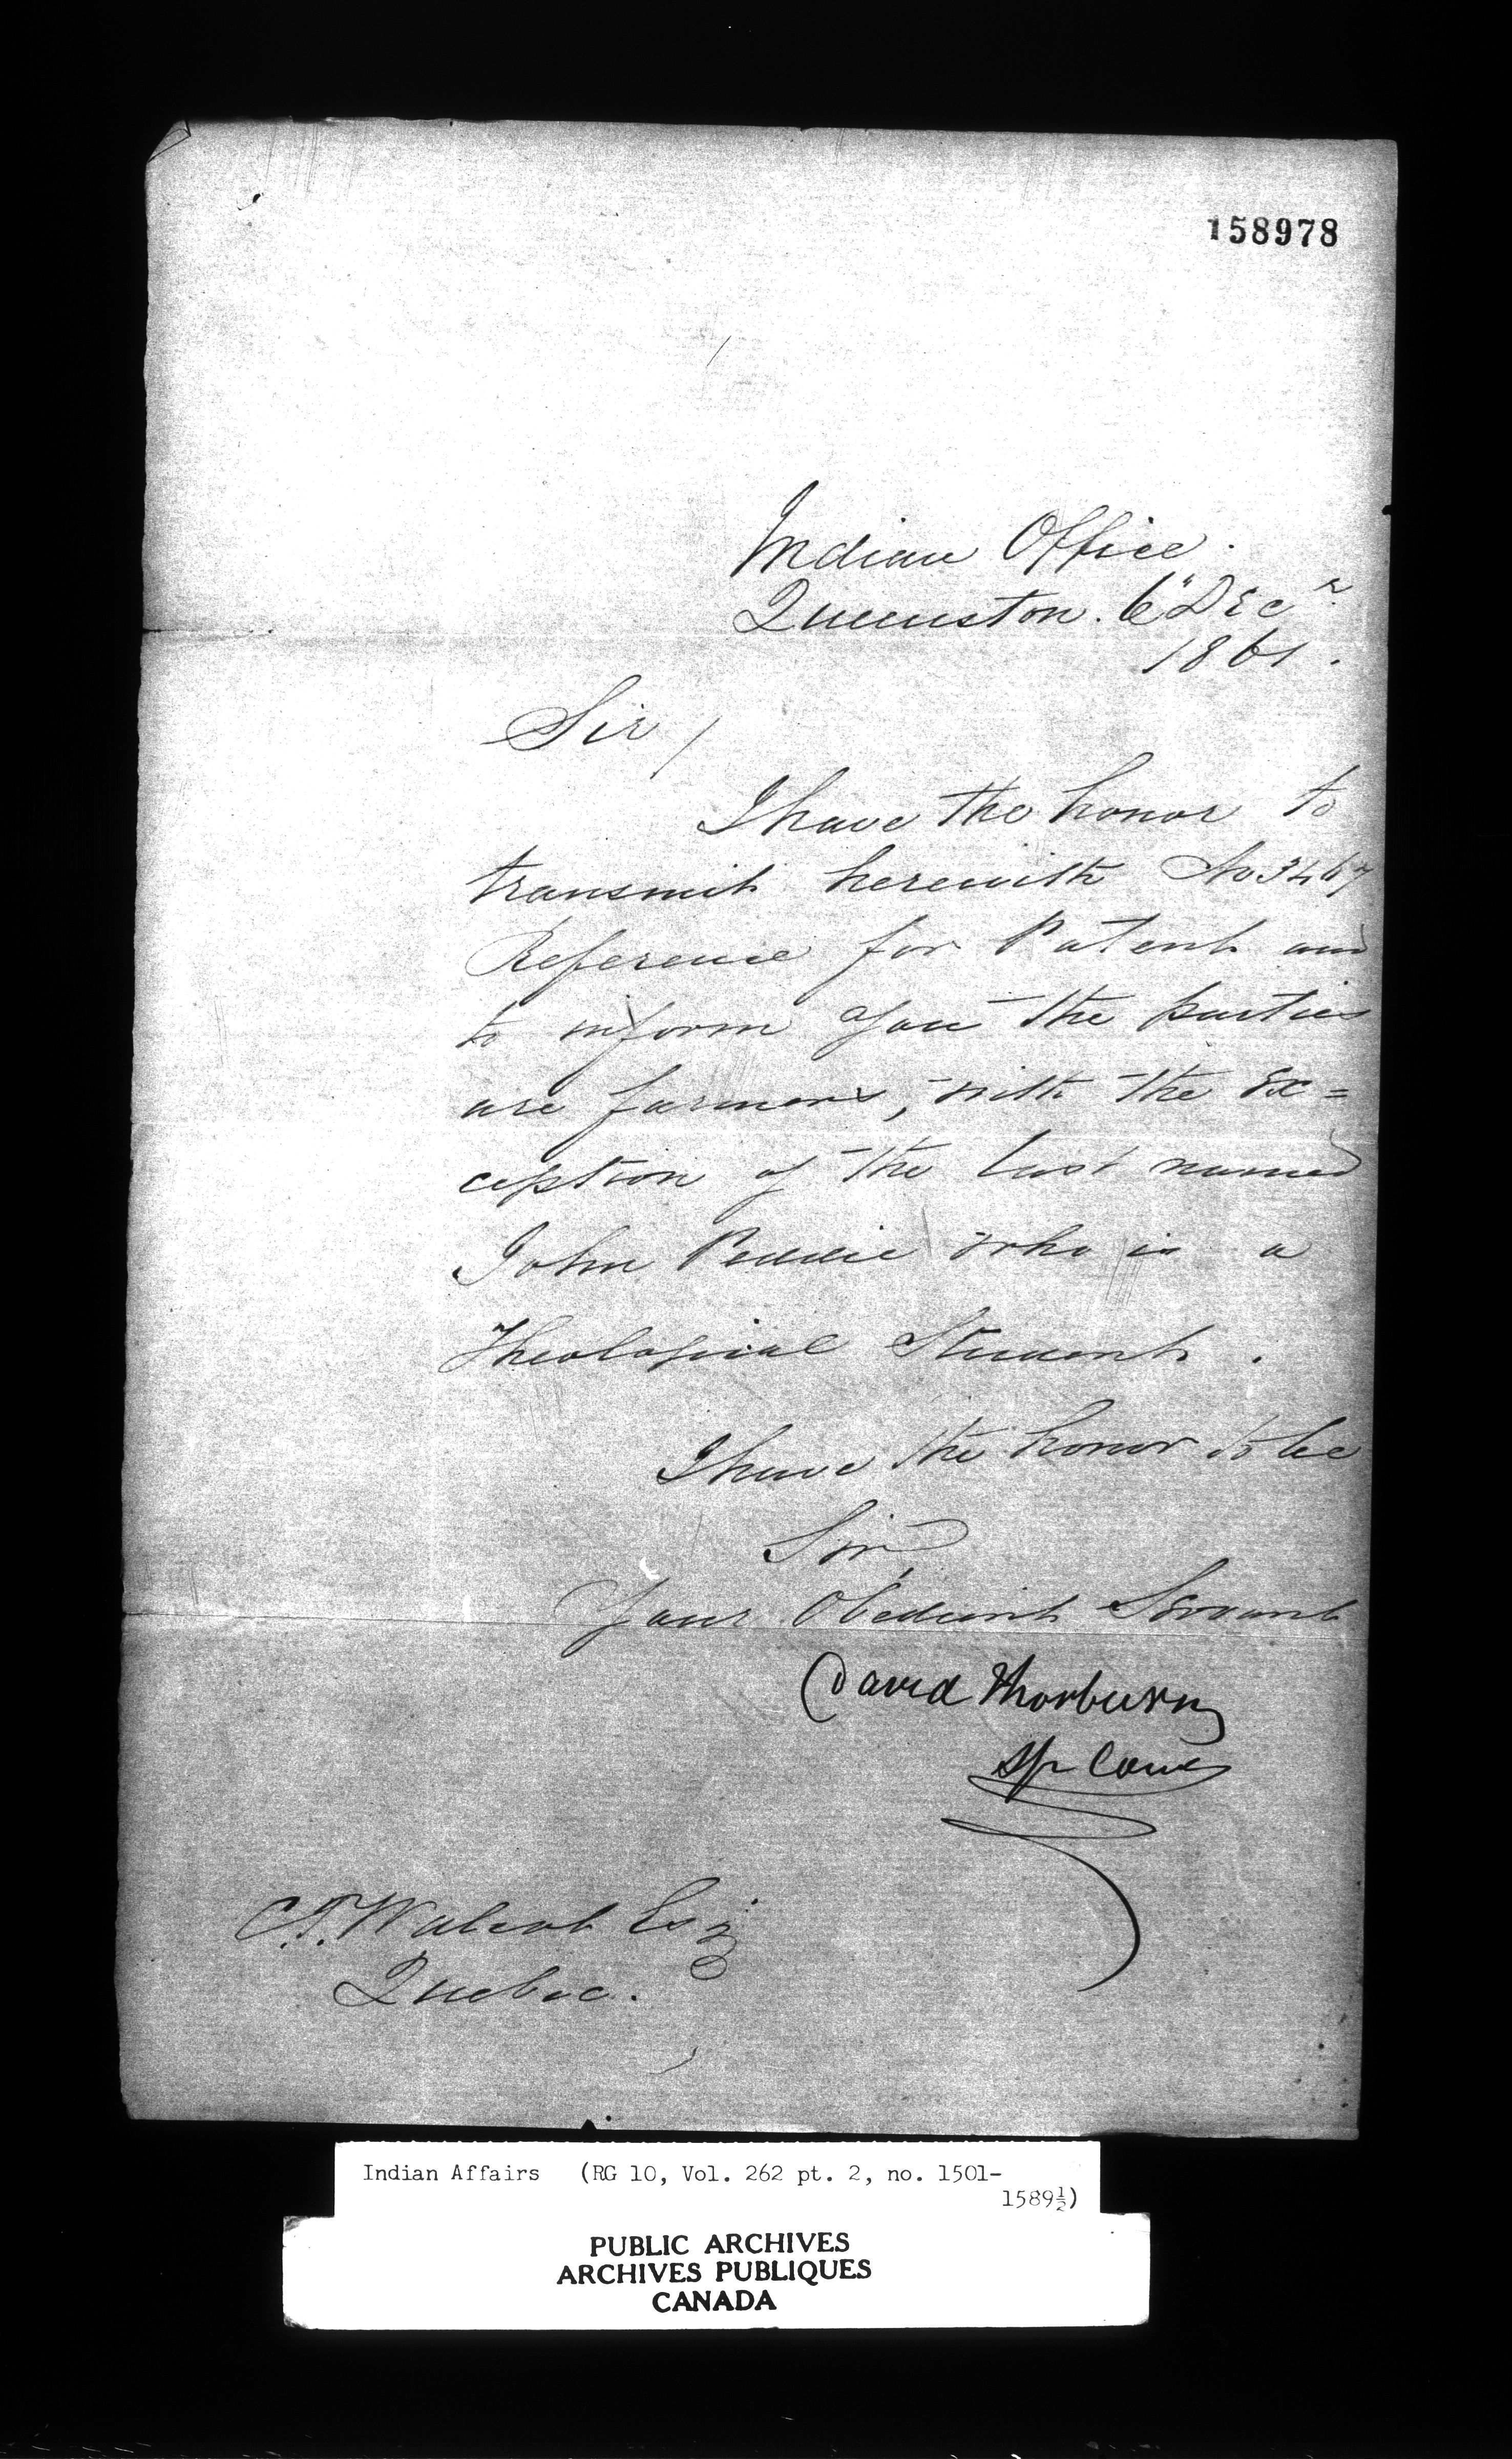 158978
Indian Office.
Queenston. 6" Decr
1861.
Sir /
I have the honor to
transmit herewith No 3467
Reference for Patent and
to inform you the parties
are farmers, with the ex=
ception of the last named
John Peddie who is a
Theological Student.
I have the honor to be
Sir
Your Obedient Servant
David Thorburn
Sp Com
C. T. Walcot Esq
Quebec.
Indian Affairs (RG 10, Vol. 262 pt. 2, no. 1501-
1589½)
PUBLIC ARCHIVES
ARCHIVES PUBLIQUES
CANADA